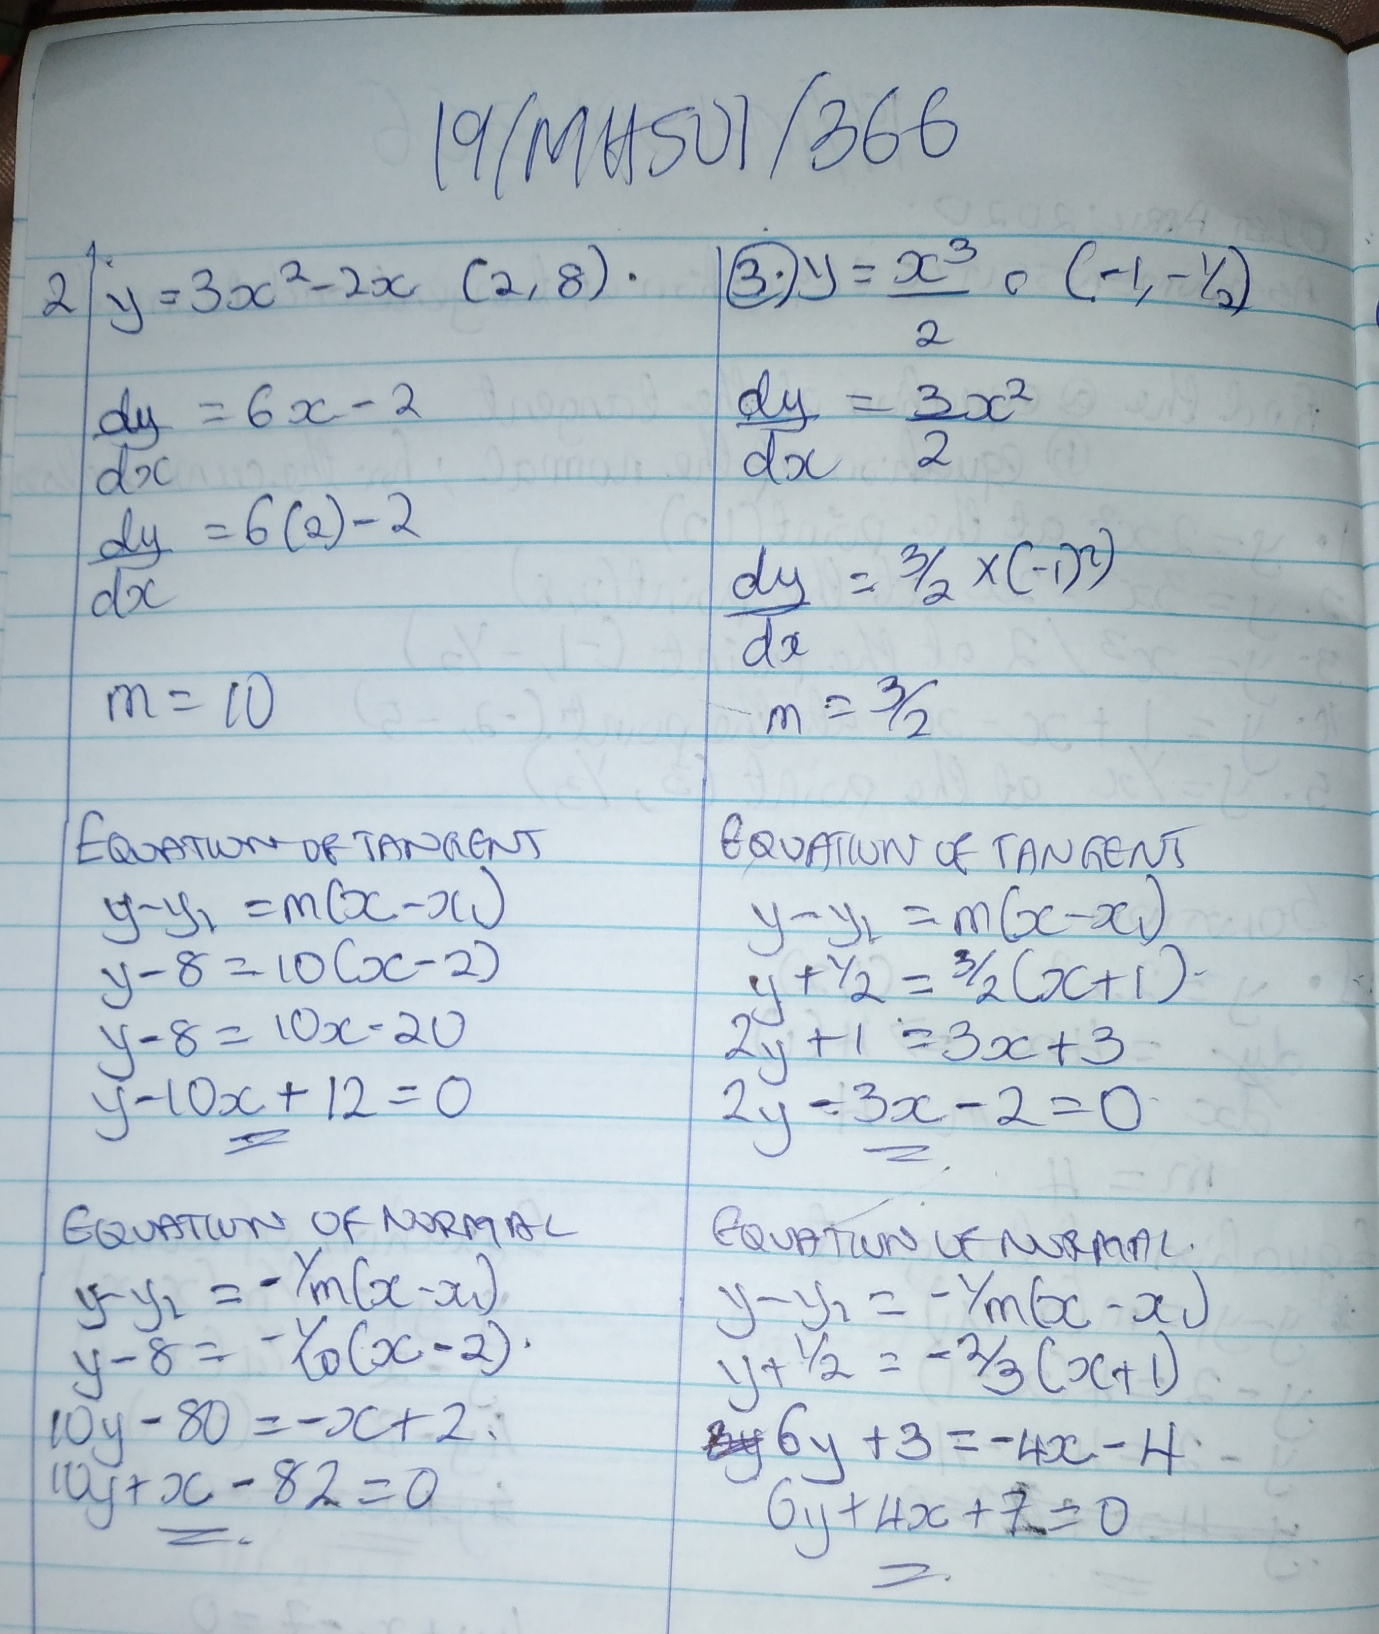 19/MHS01/366
2 y = 3x² - 2x (2, 8).
dy/dx = 6x - 2
dy/dx = 6(2) - 2
m = 10
EQUATION OF TANGENT
y - y₁ = m(x - x₁)
y - 8 = 10(x - 2)
y - 8 = 10x - 20
y - 10x + 12 = 0
EQUATION OF NORMAL
y - y₁ = -1/m(x - x₁)
y - 8 = -1/10(x - 2).
10y - 80 = -x + 2
10y + x - 82 = 0
3.) y = x³/2 (-1, -1/2)
dy/dx = 3x²/2
dy/dx = 3/2 × (-1)²)
m = 3/2
EQUATION OF TANGENT
y - y₁ = m(x - x₁)
y + 1/2 = 3/2(x + 1)
2y + 1 = 3x + 3
2y - 3x - 2 = 0
EQUATION OF NORMAL.
y - y₁ = -1/m(x - x₁)
y + 1/2 = -2/3(x + 1)
6y + 3 = -4x - 4
6y + 4x + 7 = 0